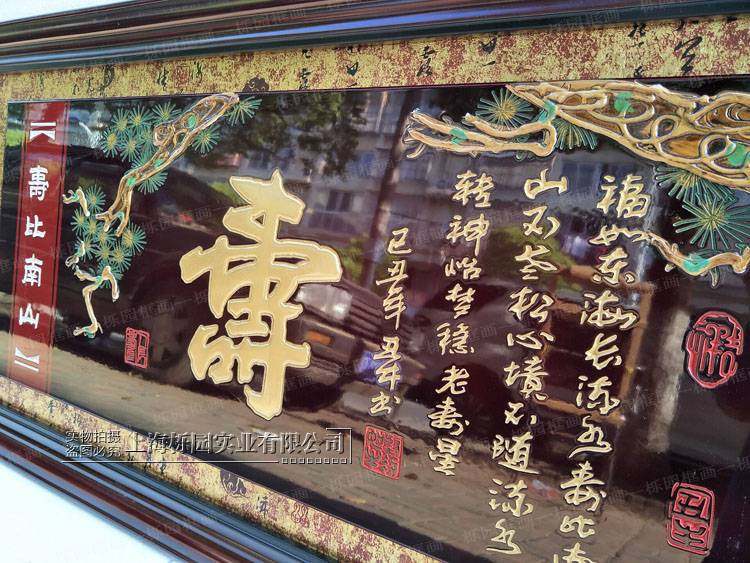 福如东海长流水寿比南
山不老松心境不随流水
转神怡梦稳老寿星
己丑年丑牛书
寿
【寿比南山】
实物拍摄
盗图必究
上海栎园实业有限公司
栎园框画